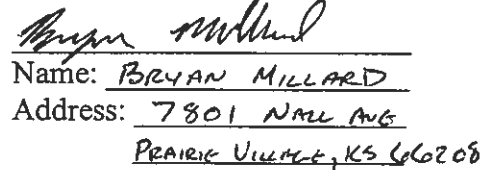 Bryan Millard
Name: BRYAN MILLARD
Address: 7801 NALL AVE
PRAIRIE VILLAGE, KS 66208